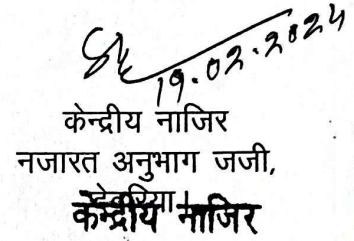 19.02.2024
केन्द्रीय नाजिर
नजारत अनुभाग जजी,
देवरिया।
केन्द्रीय नाजिर